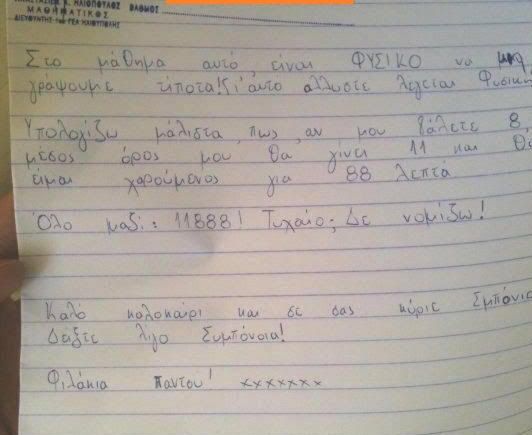 Κ. ΗΛΙΟΠΟΥΛΟΣ ΒΑΘΜΟΣ
ΜΑΘΗΜΑΤΙΚΟΣ
ΔΙΕΥΘΥΝΤΗΣ του ΓΕΛ ΗΛΙΟΥΠΟΛΗΣ
Στο μάθημα αυτό, είναι ΦΥΣΙΚΟ να μη
γράψουμε τίποτα! Γι' αυτό αλλωστε λεγεται Φυσικη
Υπολογίζω μάλιστα, πως, αν μου βάλετε 8,
μέσος όρος μου θα γίνει 11 και θα
είμαι χαρούμενος για 88 λεπτά
Όλο μαζί: 11888! Τυχαίο; Δε νομίζω!
Καλό καλοκαίρι και σε σας κύριε Σμπόνια
Δείξτε λίγο Συμπόνοια!
Φιλάκια παντού! xxxxxxx